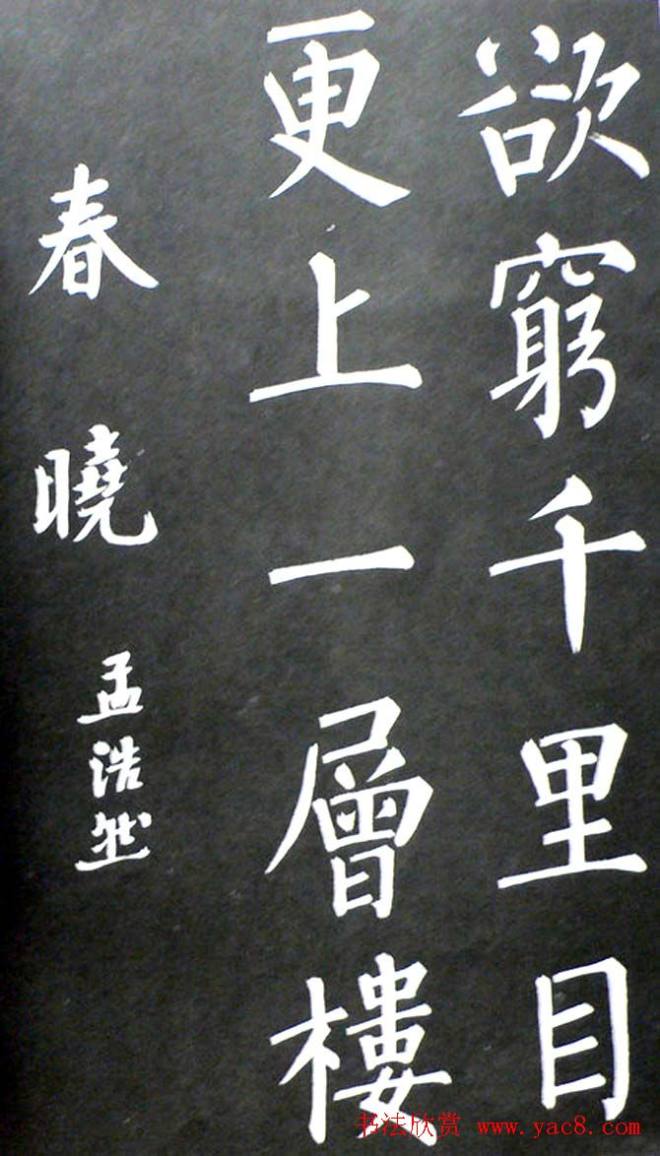 欲窮千里目
更上一層樓
春曉 孟浩然
书法欣赏 www.yac8.com